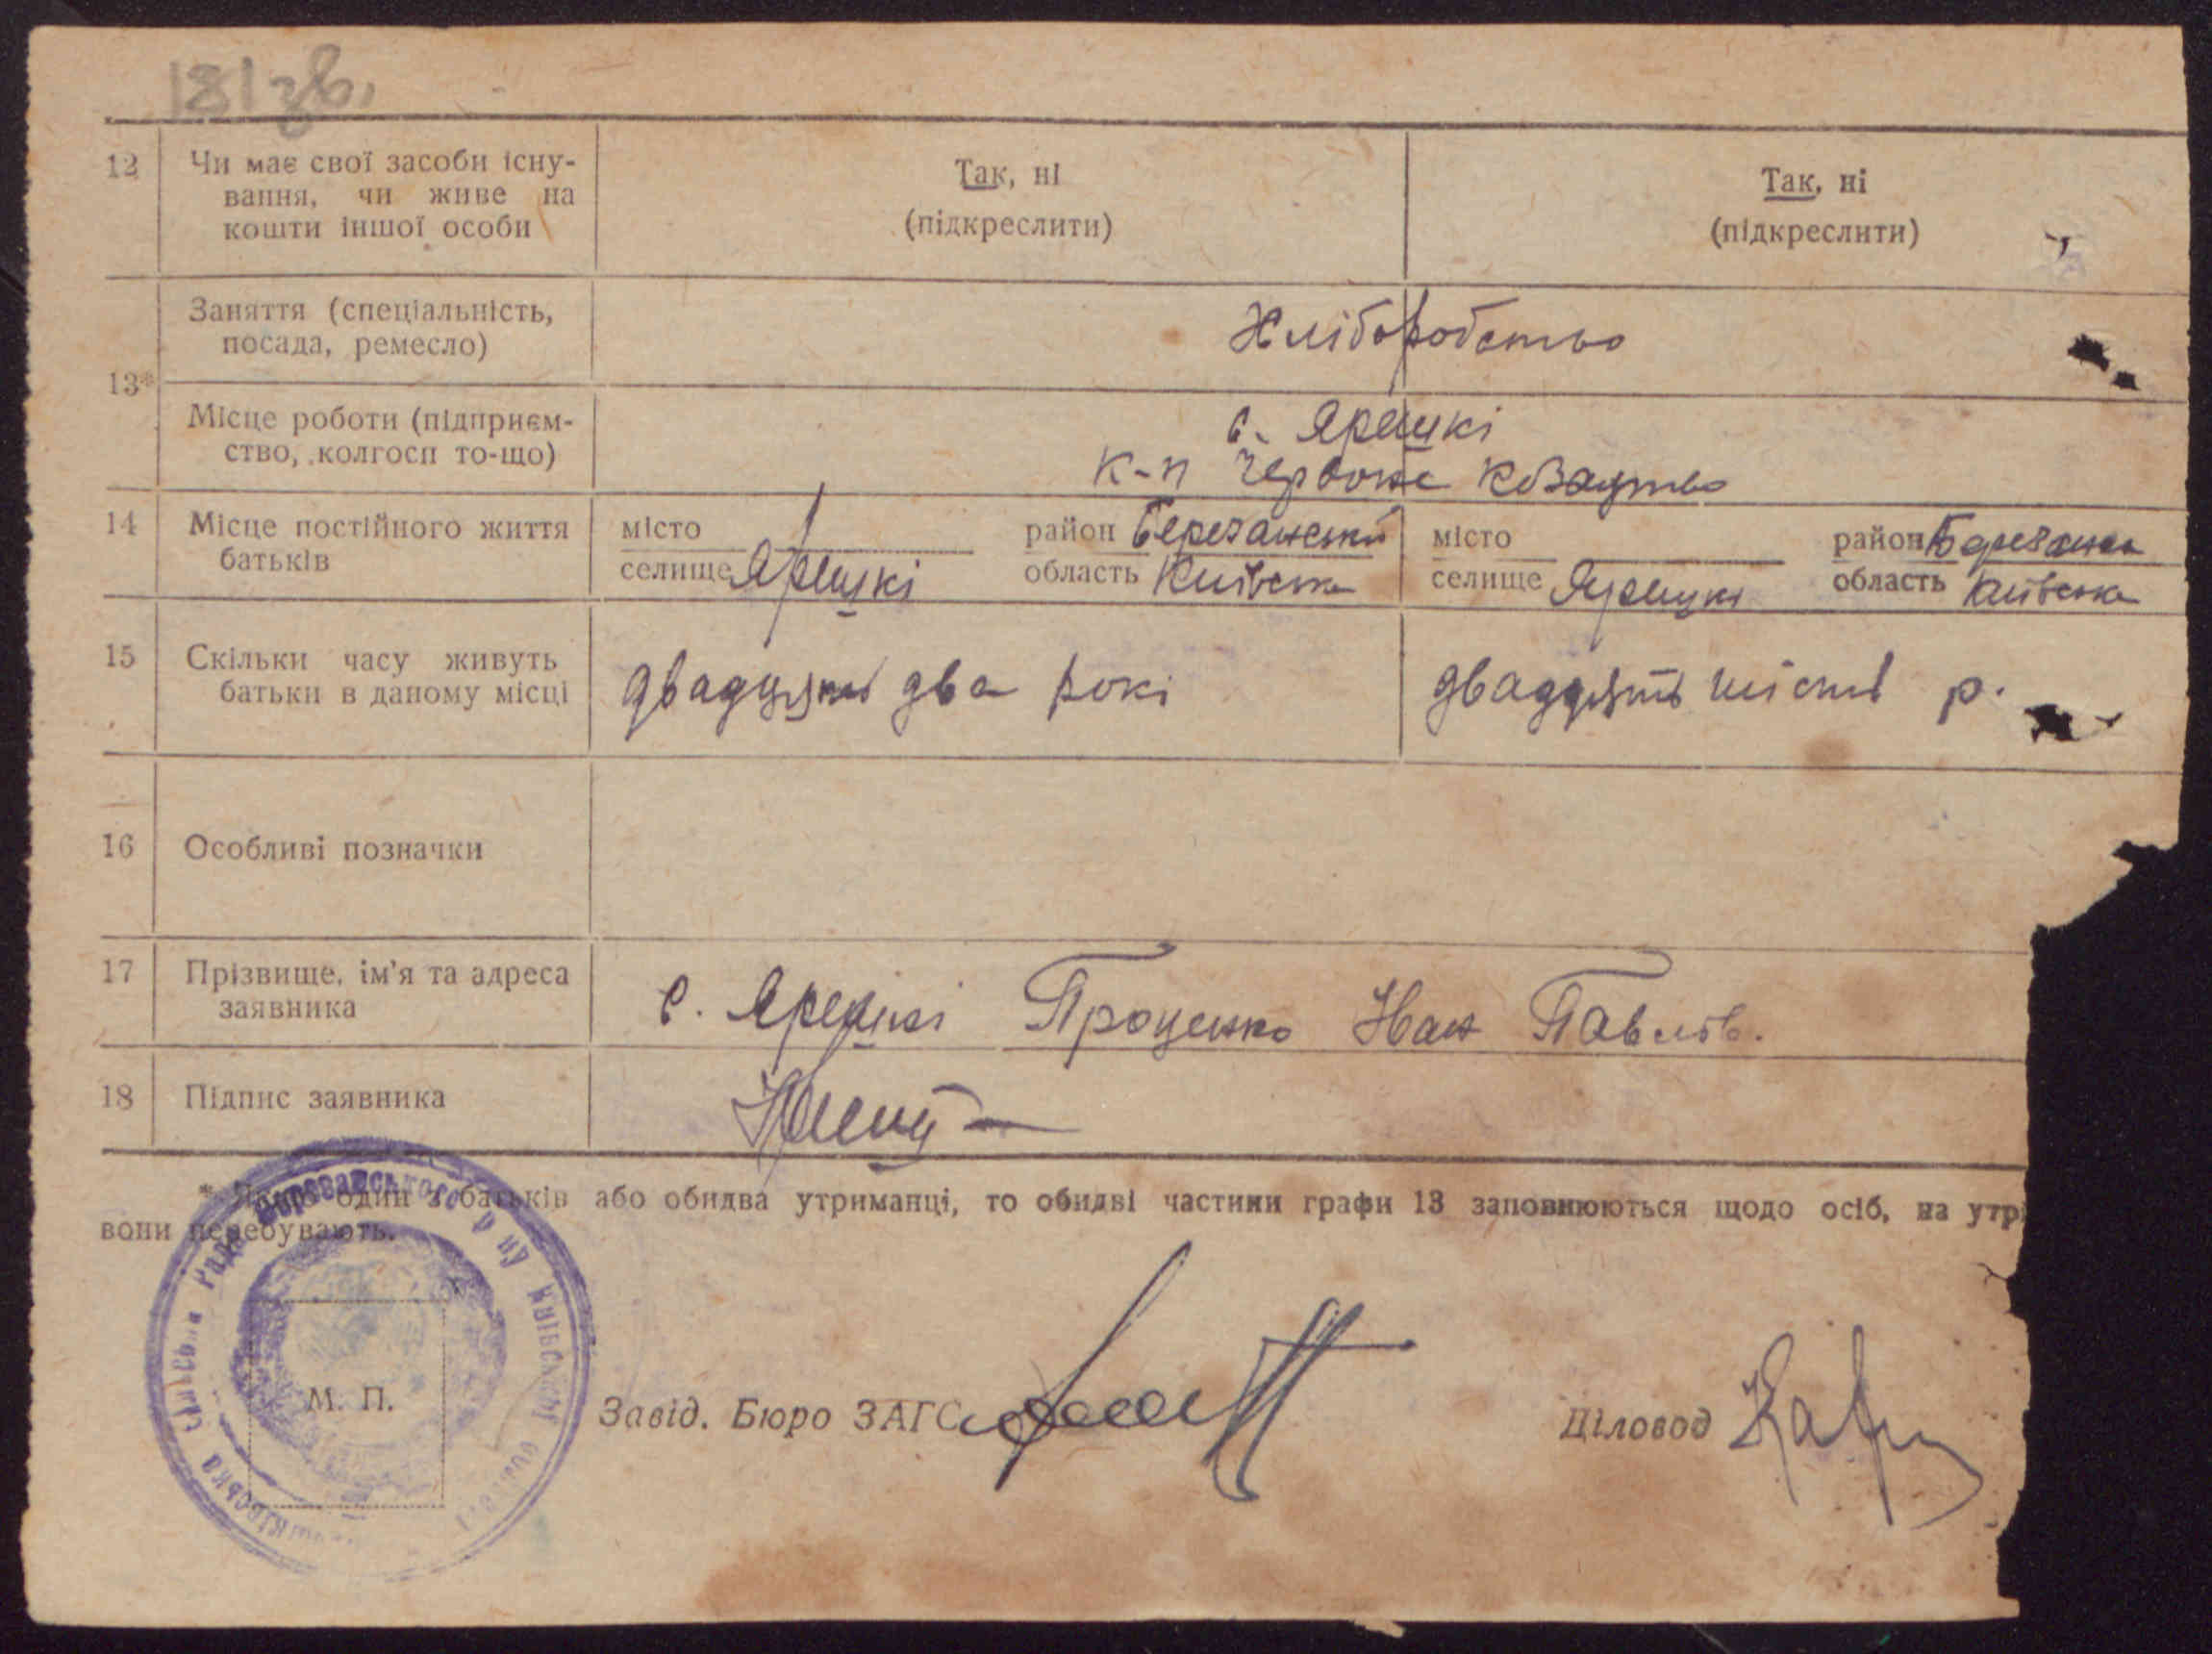 181 зв.
12 Чи має свої засоби існу-
вання, чи живе на
кошти іншої особи
Так, ні
(підкреслити)
Так, ні
(підкреслити)
13*
Заняття (спеціальність,
посада, ремесло)
Хліборобство
Місце роботи (підприєм-
ство, колгосп то-що)
с. Ярешкі
к-п Червоне козацтво
14 Місце постійного життя
батьків
місто
селище Ярешкі
район Березанський
область Київська
місто
селище Ярешкі
район Березанськ
область Київська
15 Скільки часу живуть
батьки в даному місці
двадцять два рокі
двадцять шість р.
16 Особливі позначки
17 Прізвище, ім'я та адреса
заявника
с. Ярешкі Проценко Іван Павлов.
18 Підпис заявника
* Якщо один з батьків або обидва утриманці, то обидві частини графи 13 заповнюються щодо осіб, на утр
вони перебувають.
М. П.
Завід. Бюро ЗАГС
Діловод